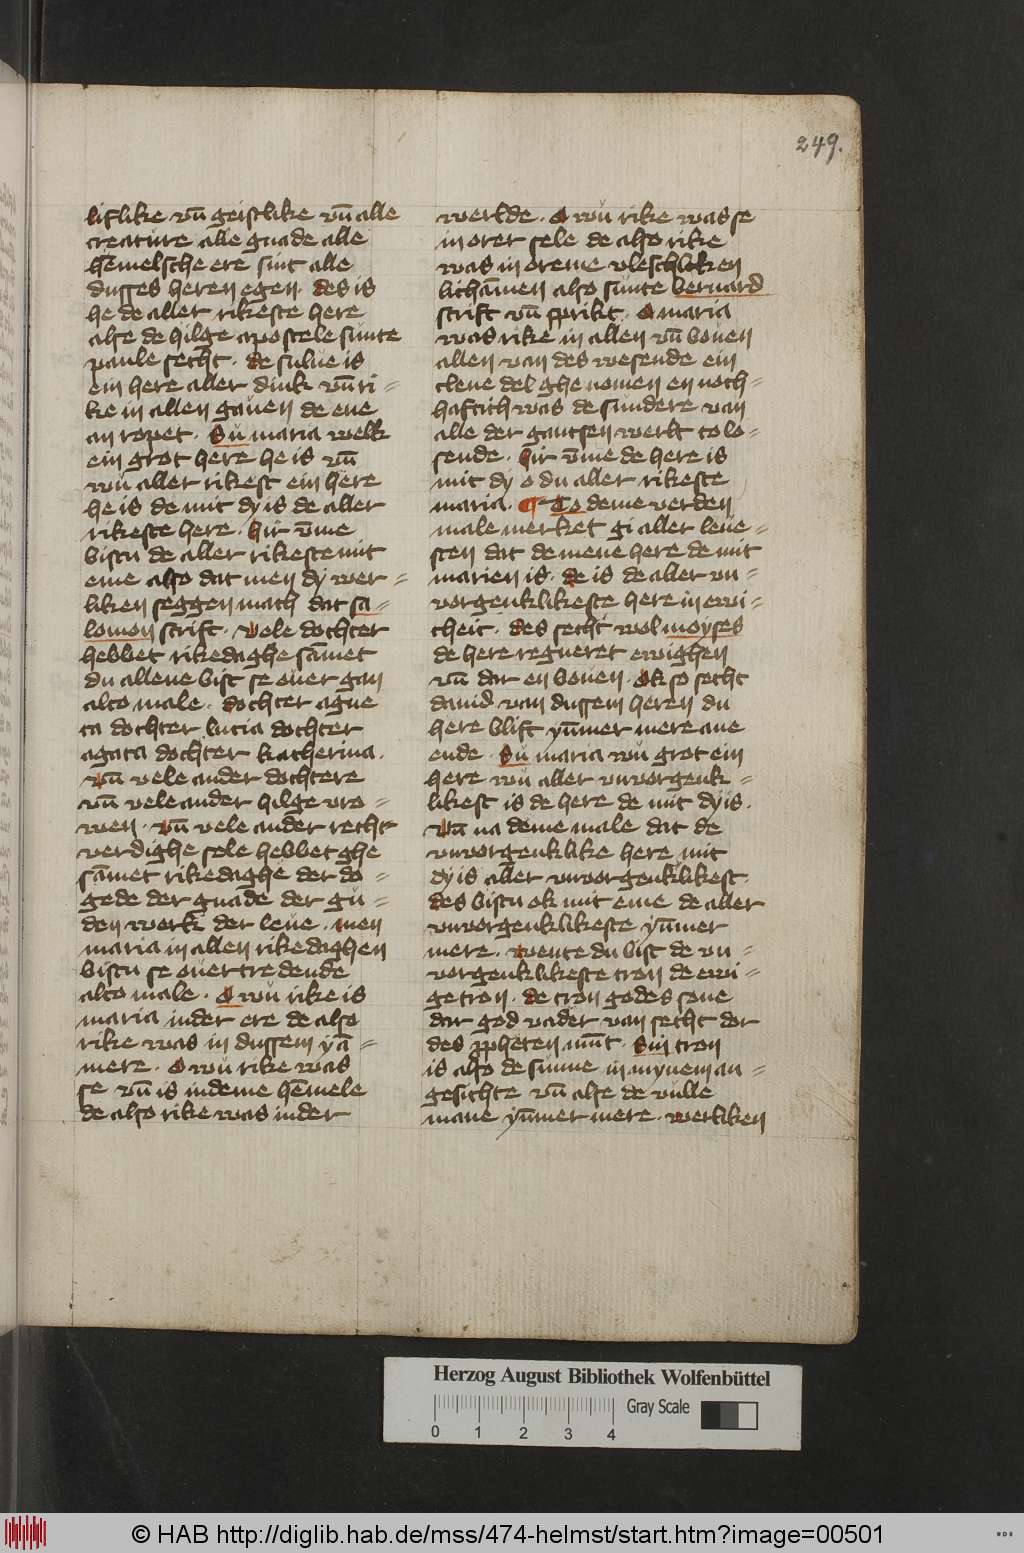 249.
liflike vn̄ geistlike vn̄ alle
creature alle gnade alle
hēmelsche ere sint alle
dusses heren egen · des is
he de aller rikeste here
alse de hilge apostele sunte
paule secht · de sulue is
ein here aller dink vn̄ ri=
ke in allen gauen de ene
an ropet · Su maria welk
ein grot here he is vn̄
wu aller rikest ein here
he is de mit dy is de aller
rikeste here · hir vm̄e
bistu de aller rikeste mit
eme also dat men dy wer=
liken seggen mach dat sa=
lomon scrift · Vele dochter
hebbet rikedaghe sāmet
du allene bist se ouer gan
alto male · dochter agne
ta dochter lucia dochter
agata dochter katherina ·
Vn̄ vele ander dochtere
vn̄ vele ander hilge vro=
wen · Vn̄ vele ander recht
verdighe sele hebbet ghe
sāmet rikedaghe der do=
gede der gnade der gu=
den werk der leue · men
maria in allen rikedaghen
bistu se ouertredende
alto male · O wu rike is
maria in der ere de also
rike was in dussem yā=
mere · O wu rike was
se vn̄ is in deme hēmele
de also rike was in der
werlde · O wu rike was se
in orer sele de also rike
was in oreme vleschliken
lichāmen also sunte bernard
scrift vn̄ sprikt · O maria
was rike in allen vn̄ bouen
allen van des wesende ein
cleue del ghenomen en noch=
haftich was de sundere van
alle der gantsen werlt to lo=
sende · hir vm̄e de here is
mit dy o du aller rikeste
maria · ¶ To deme verden
male merket gi aller leue=
sten dat de mene here de mit
marien is · de is de aller vn=
vorgenklikeste here in ewi=
cheit · des secht wol moyses
de here regneret ewighen
vn̄ dar en bouen · Ok so secht
dauid van dussem heren du
here blift yūmer mere ane
ende · Su maria wu grot ein
here wu aller vnvorgenk=
likest is de here de mit dy is ·
Vn̄ na deme male dat de
vnvorgenklike here mit
dy is aller vnvorgenklikest ·
des bistu ok mit eme de aller
vnvorgenklikeste yūmer
mere · wente du bist de vn=
vorgenklikeste tron de ewi=
ge tron · de tron godes sone
dar god vader van secht dor
des ppheten mūt · Sin tron
is also de sunne in mynem an=
gesichte vn̄ alse de vulle
mane yūmer mere · werliken
Herzog August Bibliothek Wolfenbüttel
Gray Scale
0 1 2 3 4
© HAB http://diglib.hab.de/mss/474-helmst/start.htm?image=00501